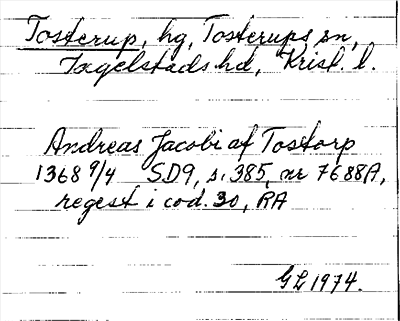 Tosterup, hg, Tosterups sn,
Ingelstads hd, Krist. l.
Andreas Jacobi af Tostorp
1368 9/4 SD9, s. 385, nr 7688A,
regest i cod. 30, RA
GL 1974.